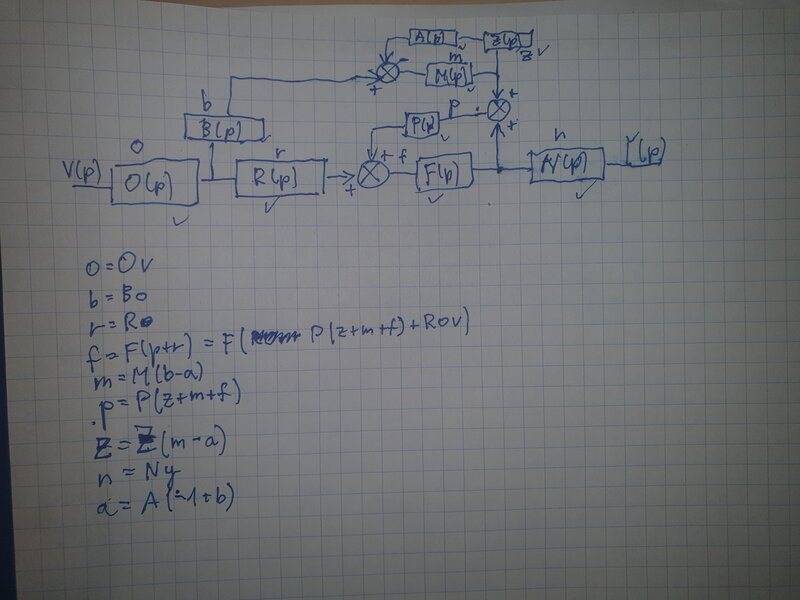 A(p) Z(p)
z
- m
+ M(p) +
b p
B(p) P(p) +
o n
V(p) r + f Y(p)
O(p) R(p) + F(p) N(p)
o = Ov
b = Bo
r = Ro
f = F(p+r) = F( P(z+m+f)+ROV)
m = M(b-a)
p = P(z+m+f)
z = Z(m-a)
n = Ny
a = A(-1+b)